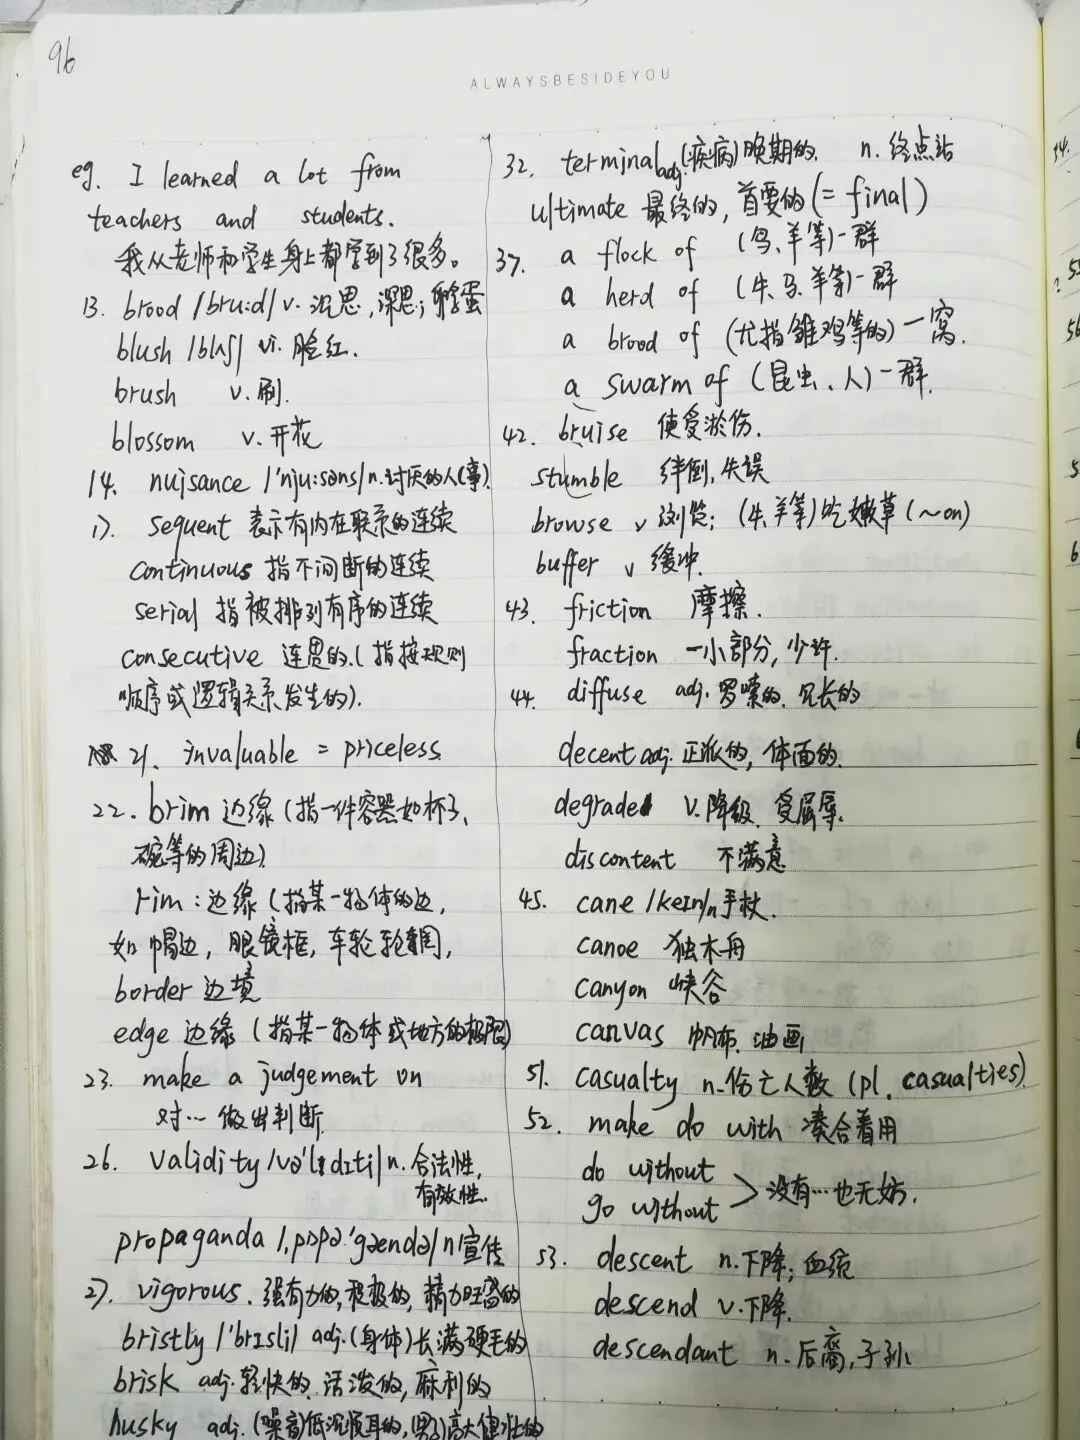 96
ALWAYSBESIDEYOU
eg. I learned a lot from
teachers and students.
我从老师和学生身上都学到了很多。
13. brood /bru:d/ v. 沉思,深思;孵蛋
blush /blʌʃ/ vi. 脸红.
brush v. 刷.
blossom v. 开花
14. nuisance /'nju:səns/ n. 讨厌的人(事)
17. sequent 表示有内在联系的连续
continuous 指不间断的连续
serial 指被排列有序的连续
consecutive 连贯的.(指按规则
顺序或逻辑关系发生的).
21. invaluable = priceless
22. brim 边缘(指一件容器如杯子、
碗等的周边)
rim:边缘(指某一物体的边,
如帽边,眼镜框,车轮轮辋,
border 边境
edge 边缘(指某一物体或地方的极限)
23. make a judgement on
对…做出判断
26. validity /və'lɪdɪti/ n. 合法性,
有效性.
propaganda /,prɒpə'gændə/ n 宣传
27. vigorous. 强有力的,积极的,精力旺盛的
bristly /'brɪsli/ adj.(身体)长满硬毛的
brisk adj. 轻快的.活泼的,麻利的
husky adj.(嗓音)低沉的,(男子)高大健壮的
32. terminal adj.(疾病)晚期的. n. 终点站
ultimate 最终的,首要的(= final)
37. a flock of (鸟、羊等)一群
a herd of (牛、马、羊等)一群
a brood of (尤指雏鸡等的)一窝.
a swarm of (昆虫、人)一群.
42. bruise 使受淤伤.
stumble 绊倒,失误
browse v 浏览;(牛、羊等)吃嫩草(~on)
buffer v 缓冲.
43. friction 摩擦.
fraction 一小部分,少许.
44. diffuse adj. 罗嗦的.冗长的
decent adj. 正派的,体面的.
degrade v. 降级.受屈辱.
discontent 不满意
45. cane /keɪn/ n 手杖.
canoe 独木舟
canyon 峡谷
canvas 帆布.油画
51. casualty n. 伤亡人数(pl. casualties)
52. make do with 凑合着用
do without
go without > 没有…也无妨.
53. descent n. 下降;血统
descend v. 下降.
descendant n. 后裔,子孙